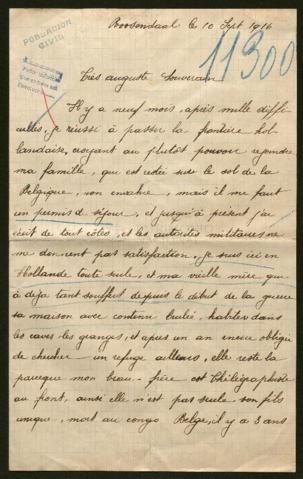 Roosendaal le 10 Sept 1916
POBLACIÓN
CIVIL
11300
Très auguste Souverain
Il y a neuf mois, après mille diffi
cultés, je réussis à passer la frontière hol
landaise, croyant au plutôt pouvoir rejoindre
ma famille, qui est restée sur le sol de la
Belgique, non envahie, mais il me faut
un permis de séjour, et jusqu'à présent j'ai
écrit de tout côtés, et les autorités militaires ne
me donnent pas satisfaction, je suis ici en
Hollande toute seule, et ma vieille mère qui
a déja tant souffert depuis le début de la guerre
sa maison avec contenu brulée, habiter dans
les caves les granges, et après un an encore obligée
de chercher un refuge ailleurs, elle reste là
parceque mon beau-frère est Théлégraphiste
au front, ainsi elle n'est pas seule son fils
unique, mort au congo Belge, il y a 3 ans